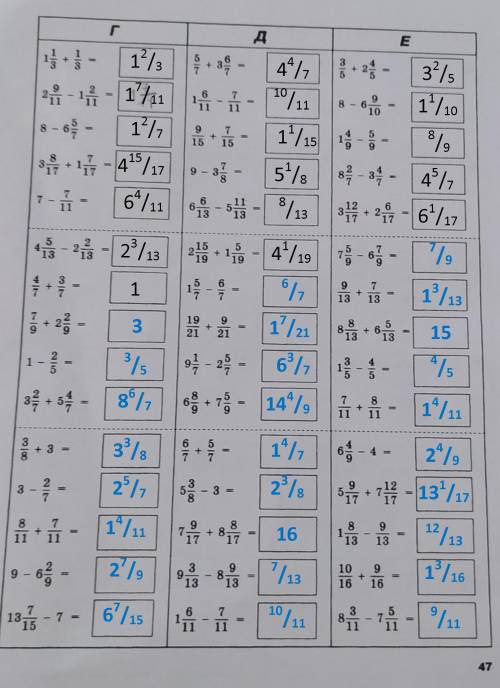 Г Д Е
1 1/3 + 1/3 = 1 2/3 5/7 + 3 6/7 = 4 4/7 3/5 + 2 4/5 = 3 2/5
2 9/11 − 1 2/11 = 1 7/11 1 6/11 − 7/11 = 10/11 8 − 6 9/10 = 1 1/10
8 − 6 5/7 = 1 2/7 9/15 + 7/15 = 1 1/15 1 4/9 − 5/9 = 8/9
3 8/17 + 1 7/17 = 4 15/17 9 − 3 7/8 = 5 1/8 8 2/7 − 3 4/7 = 4 5/7
7 − 7/11 = 6 4/11 6 6/13 − 5 11/13 = 8/13 3 12/17 + 2 6/17 = 6 1/17
4 5/13 − 2 2/13 = 2 3/13 2 15/19 + 1 5/19 = 4 1/19 7 5/9 − 6 7/9 = 7/9
4/7 + 3/7 = 1 1 5/7 − 6/7 = 6/7 9/13 + 7/13 = 1 3/13
7/9 + 2 2/9 = 3 19/21 + 9/21 = 1 7/21 8 8/13 + 6 5/13 = 15
1 − 2/5 = 3/5 9 1/7 − 2 5/7 = 6 3/7 1 3/5 − 4/5 = 4/5
3 2/7 + 5 4/7 = 8 6/7 6 8/9 + 7 5/9 = 14 4/9 7/11 + 8/11 = 1 4/11
3/8 + 3 = 3 3/8 6/7 + 5/7 = 1 4/7 6 4/9 − 4 = 2 4/9
3 − 2/7 = 2 5/7 5 3/8 − 3 = 2 3/8 5 9/17 + 7 12/17 = 13 1/17
8/11 + 7/11 = 1 4/11 7 9/17 + 8 8/17 = 16 1 8/13 − 9/13 = 12/13
9 − 6 2/9 = 2 7/9 9 3/13 − 8 9/13 = 7/13 10/16 + 9/16 = 1 3/16
13 7/15 − 7 = 6 7/15 1 6/11 − 7/11 = 10/11 8 3/11 − 7 5/11 = 9/11
47